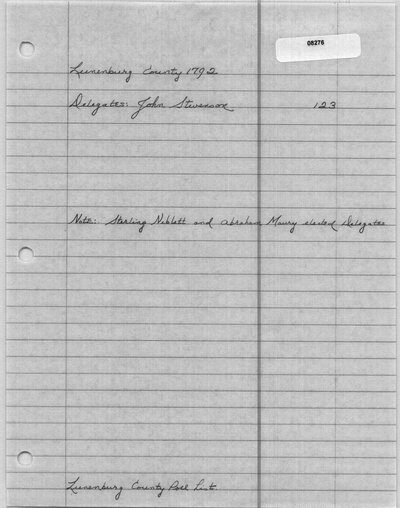 08276
Lunenburg County 1792
Delegates: John Stevenson 123
Note: Sterling Niblett and Abraham Maury elected Delegates
Lunenburg County Poll Lists